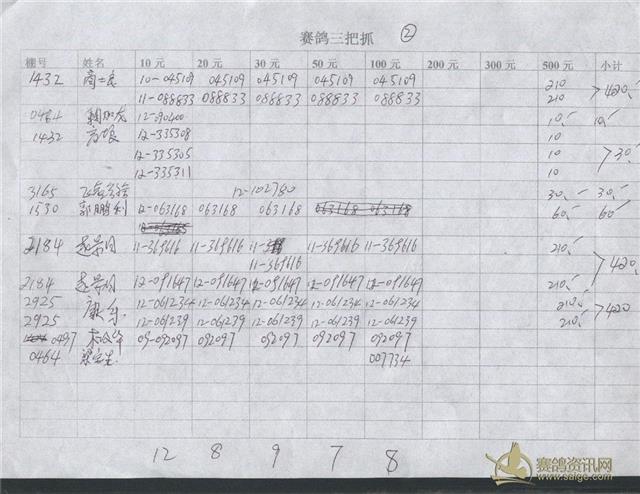 赛鸽三把抓 ②
棚号 姓名 10元 20元 30元 50元 100元 200元 300元 500元 小计
1432 10-045109 045109 045109 045109 045109 210 420
11-088833 088833 088833 088833 088833 210
12-90400 10 10
1432 12-335308 10
12-335305 10 30
12-335311 10
3165 12-102780 30 30
1530 郭鹏利 12-063168 063168 063168 063168 063168 60 60
2184 11-369616 11-369616 11-369616 11-369616 210
11-369616 420
2184 12-091647 12-091647 12-091647 12-091647 12-091647 210
2925 康乐 12-061234 12-061234 12-061234 12-061234 12-061234 210 420
2925 12-061239 12-061239 12-061239 12-061239 12-061239 210
0497 09-092097 092097 092097 092097 092097
0464 007734
12 8 9 7 8
赛鸽资讯网
www.saige.com